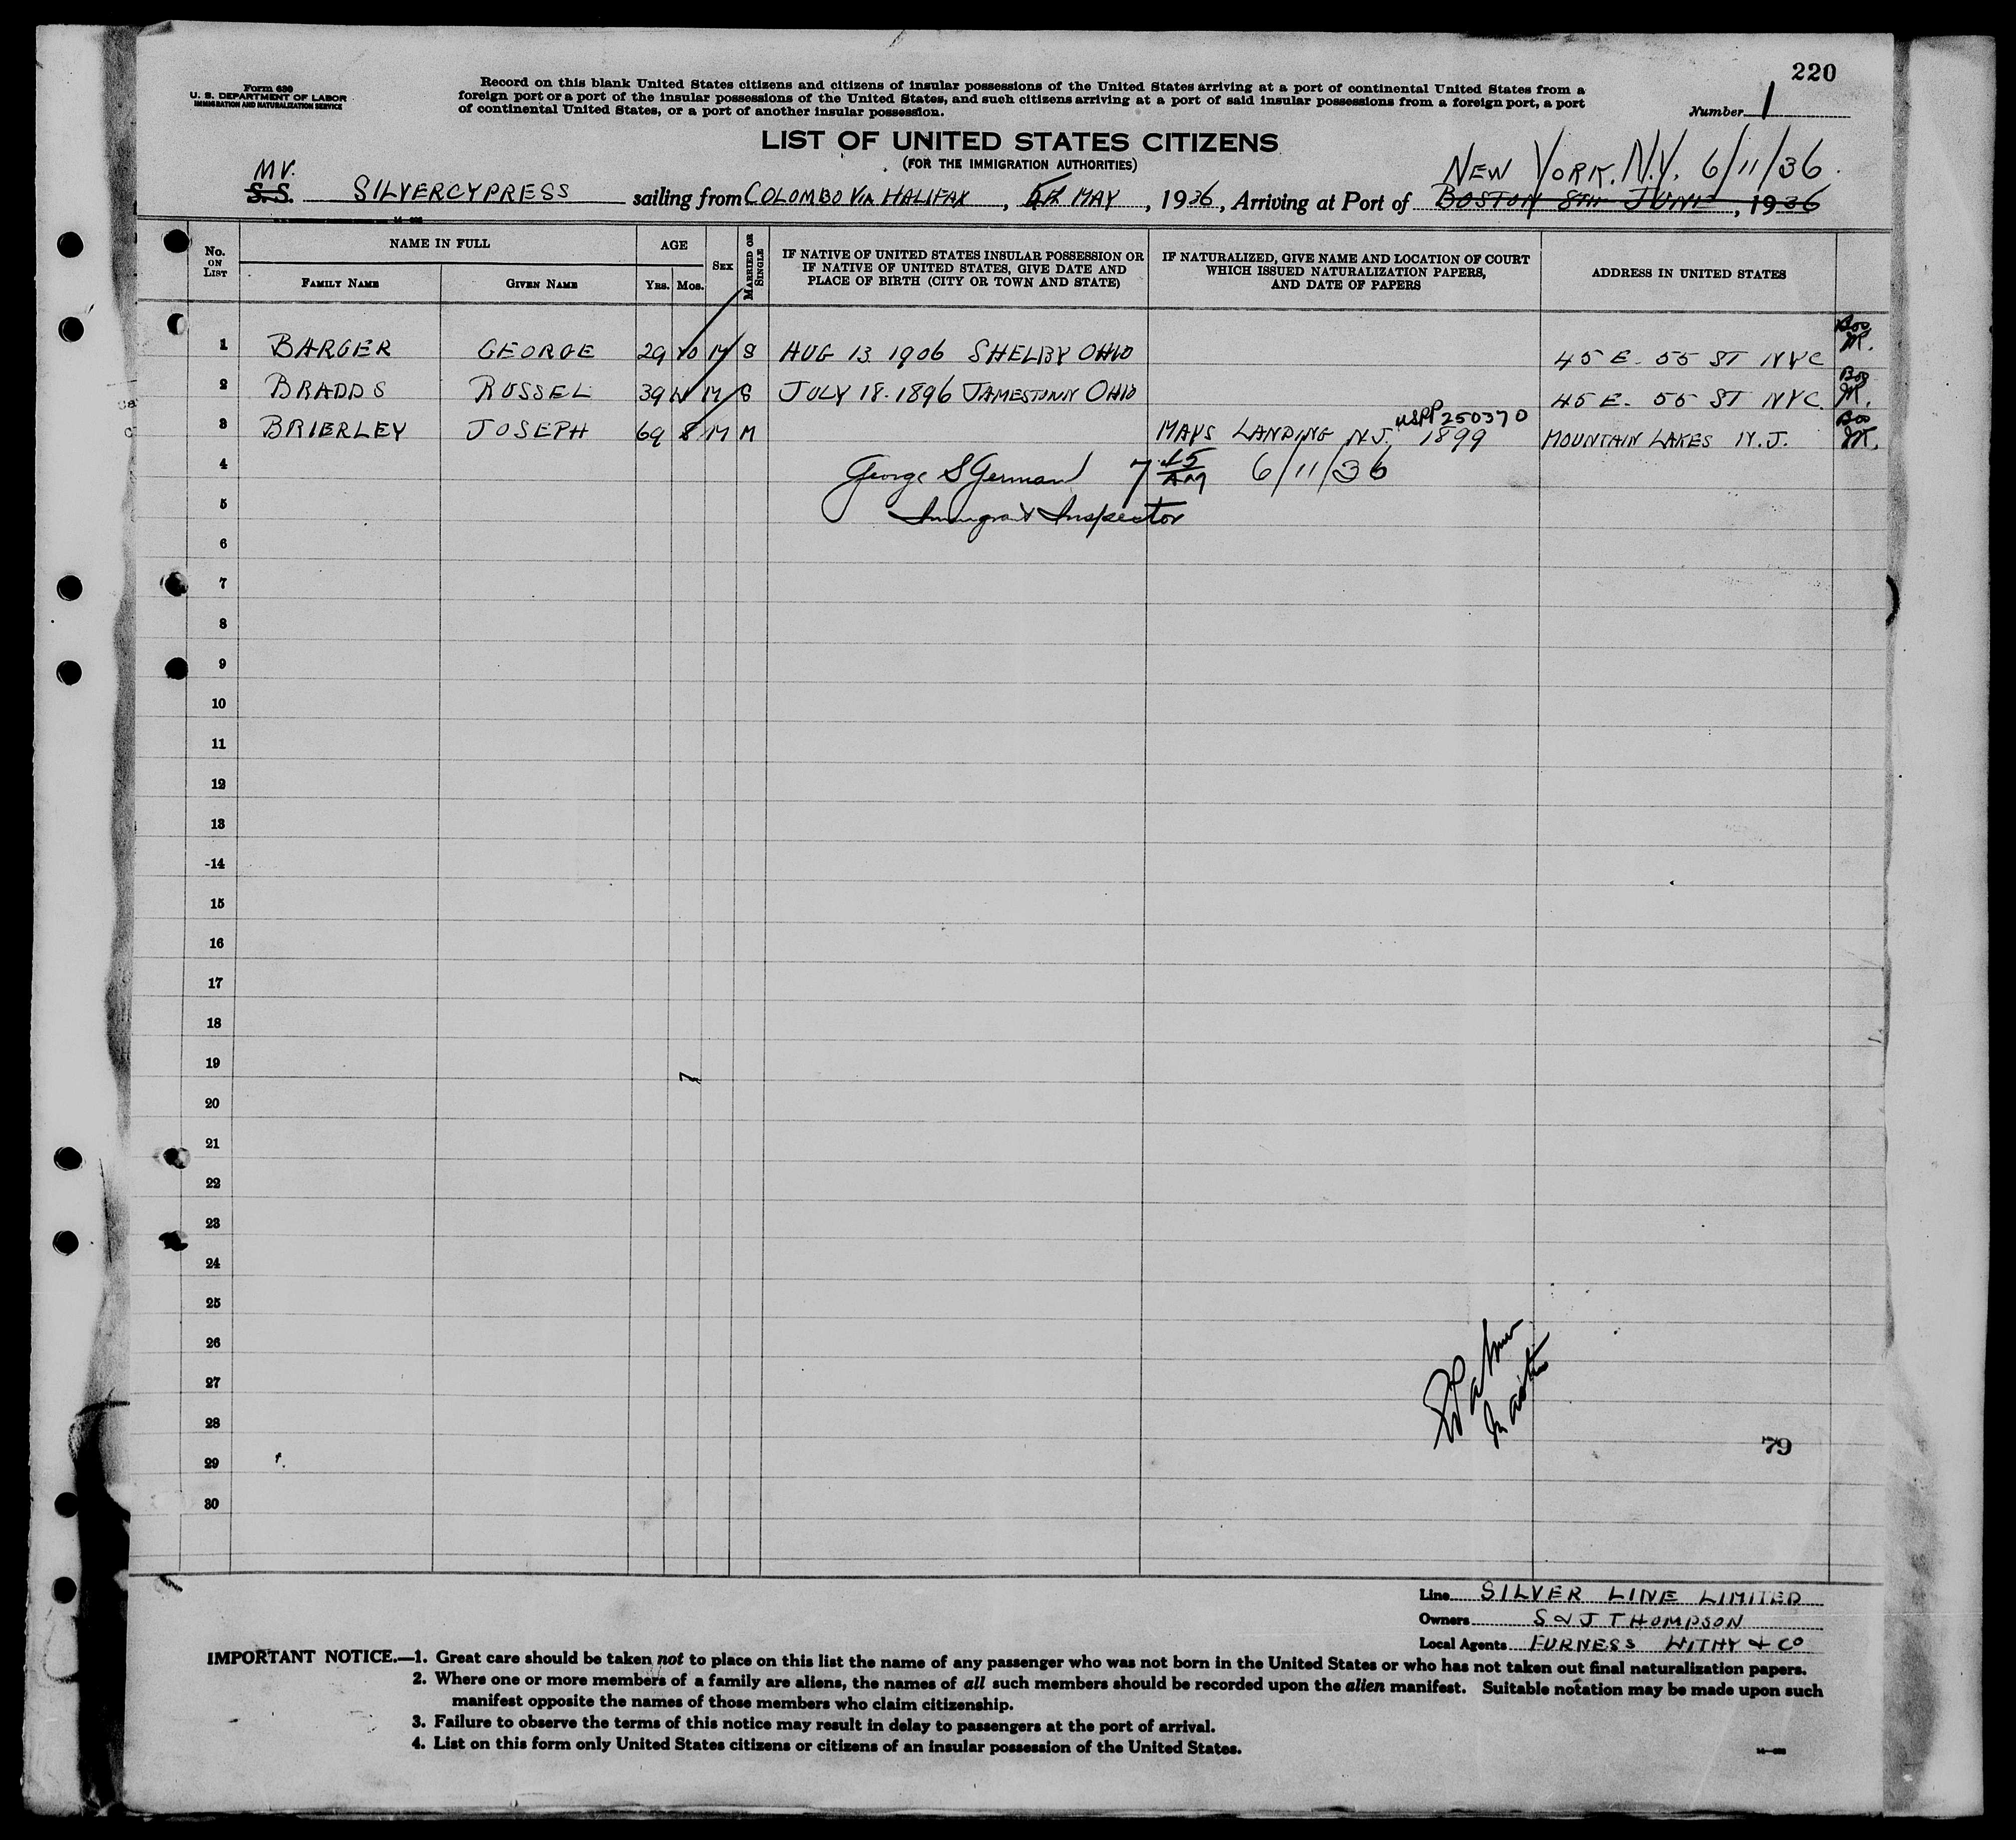 220
Form 630
U. S. DEPARTMENT OF LABOR
IMMIGRATION AND NATURALIZATION SERVICE
Record on this blank United States citizens and citizens of insular possessions of the United States arriving at a port of continental United States from a
foreign port or a port of the insular possessions of the United States, and such citizens arriving at a port of said insular possessions from a foreign port, a port
of continental United States, or a port of another insular possession.
Number 1
LIST OF UNITED STATES CITIZENS
(FOR THE IMMIGRATION AUTHORITIES)
NEW YORK. N.Y. 6/11/36.
MV.
S.S. SILVERCYPRESS sailing from COLOMBO VIA HALIFAX, MAY, 1936, Arriving at Port of BOSTON 8TH JUNE, 1936
No. ON LIST
NAME IN FULL
FAMILY NAME
GIVEN NAME
AGE
YRS. MOS.
SEX
MARRIED OR SINGLE
IF NATIVE OF UNITED STATES INSULAR POSSESSION OR
IF NATIVE OF UNITED STATES, GIVE DATE AND
PLACE OF BIRTH (CITY OR TOWN AND STATE)
IF NATURALIZED, GIVE NAME AND LOCATION OF COURT
WHICH ISSUED NATURALIZATION PAPERS,
AND DATE OF PAPERS
ADDRESS IN UNITED STATES
1 BARGER GEORGE 29 10 M S AUG 13 1906 SHELBY OHIO 45 E. 55 ST NYC
2 BRADDS RUSSEL 39 M S JULY 18. 1896 JAMESTOWN OHIO 45 E. 55 ST NYC.
USPP 250370
3 BRIERLEY JOSEPH 69 8 M M MAYS LANDING N.J. 1899 MOUNTAIN LAKES N.J.
4 George S German 7 15 AM 6/11/36
5 Immigrant Inspector
6
7
8
9
10
11
12
13
14
15
16
17
18
19
20
21
22
23
24
25
26
27
28
29
30
Master
79
Line SILVER LINE LIMITED
Owners S & J THOMPSON
Local Agents FURNESS WITHY & CO
IMPORTANT NOTICE.—1. Great care should be taken not to place on this list the name of any passenger who was not born in the United States or who has not taken out final naturalization papers.
2. Where one or more members of a family are aliens, the names of all such members should be recorded upon the alien manifest. Suitable notation may be made upon such
manifest opposite the names of those members who claim citizenship.
3. Failure to observe the terms of this notice may result in delay to passengers at the port of arrival.
4. List on this form only United States citizens or citizens of an insular possession of the United States.